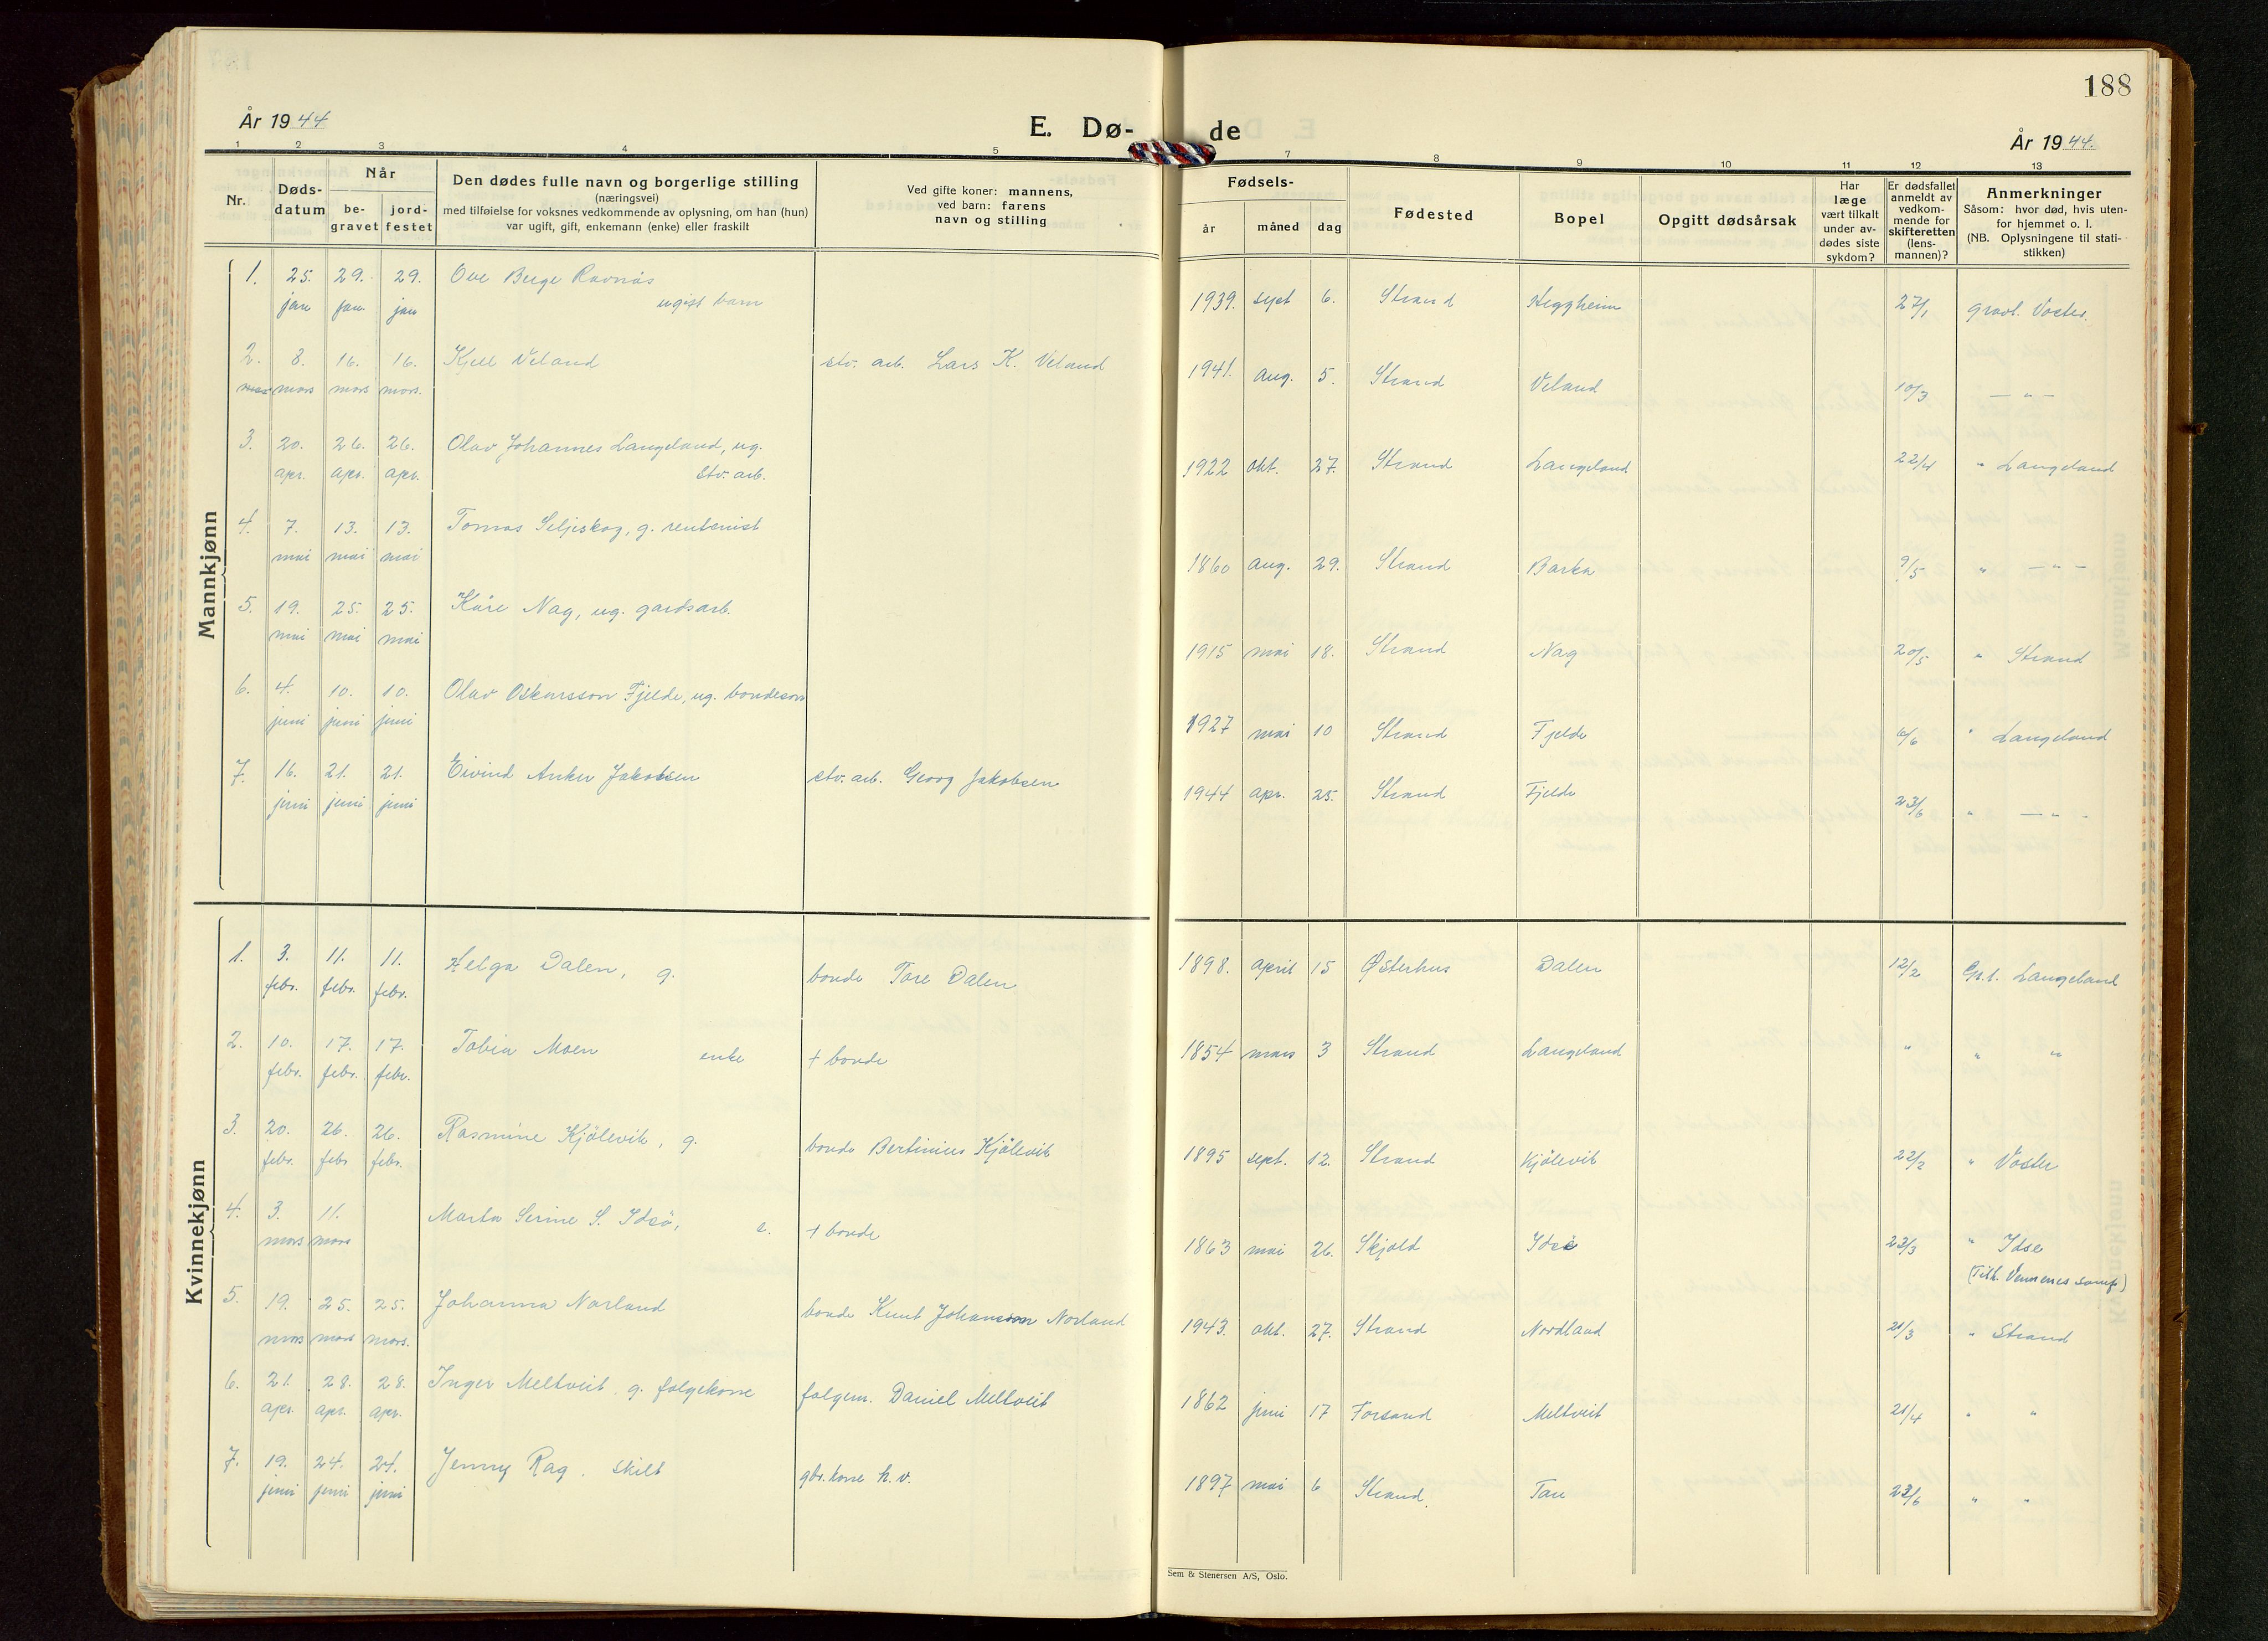 188
År 1944
E. Dø-
de
År 1944.
1 2 3 4 5
7 8 9 10 11 12 13
Nr.
Døds-
datum
Når
be-
gravet
jord-
festet
Den dødes fulle navn og borgerlige stilling
(næringsvei)
med tilføielse for voksnes vedkommende av oplysning, om han (hun)
var ugift, gift, enkemann (enke) eller fraskilt
Ved gifte koner: mannens,
ved barn: farens
navn og stilling
Fødsels-
år måned dag
Fødested
Bopel
Opgitt dødsårsak
Har
læge
vært tilkalt
under av-
dødes siste
sykdom?
Er dødsfallet
anmeldt av
vedkom-
mende for
skifteretten
(lens-
mannen)?
Anmerkninger
Såsom: hvor død, hvis uten-
for hjemmet o. l.
(NB. Oplysningene til stati-
stikken)
Mannkjønn
1. 25. 29. 29. Ove Berge Ravnås
jan jan. jan ugift barn
1939. sept 6. Strand Heggheim 27/1 gravl. Voster.
2. 8. 16. 16. Kjell Veland stv. arb. Lars K. Veland
mars mars mars mars.
1941. aug. 5. Strand Veland 10/3 — " —
3. 20. 26. 26. Olav Johannes Langeland, ug.
apr. apr. apr. stv. arb.
1922 okt. 27. Strand Langeland 22/4 " Langeland
4. 7. 13. 13. Tomas Seljeskog, g. rentenist
mai mai mai
1860 aug. 29. Strand Barka 9/5 " — " —
5. 19. 25. 25. Kåre Nag, ug. gardsarb.
mai mai mai
1915 mai 18. Strand Nag 20/5 " Strand
6. 4. 10. 10. Olav Oskarsson Fjelde, ug. bondeson
juni juni juni
1927 mai 10 Strand Fjelde 6/6 " Langeland
7. 16. 21. 21. Eivind Anker Jakobsen stv. arb. Georg Jakobsen
juni juni juni
1944 apr. 25. Strand Fjelde 23/6 " — " —
Kvinnekjønn
1. 3. 11. 11. Helga Dalen, g. bonde Tore Dalen
febr. febr. febr.
1898. april 15 Østerhus Dalen 12/2 Gr.l. Langeland
2. 10. 17. 17. Tobia Moen enke + bonde
febr. febr. febr.
1854 mars 3 Strand Langeland " " "
3. 20. 26. 26. Rasmine Kjølevik, g. bonde Bertinius Kjølevik
febr. febr febr.
1895 sept. 12. Strand Kjølevik 22/2 " Voster
4. 3. 11. Marta Serine S. Idsø, e. + bonde
mars mars
1863 mai 26. Skjold Idsø 23/3 " Idse
(Tilh. Vennenes samf.)
5. 19. 25. 25. Johanna Norland bonde Knut Johansson Norland
mars mars mars.
1943. okt. 27. Strand Nordland 21/3 " Strand
6. 21. 28. 28. Inger Meltveit g. folgekone folgem. Daniel Meltveit
apr. apr. apr.
1862 juni 17 Forsand Meltveit 21/4 " "
7. 19. 24. 24. Jenny Rag. skilt gbr. kone h. v.
juni juni juni
1897 mai 6 Strand. Tau 23/6 " "
Sem & Stenersen A/S, Oslo.